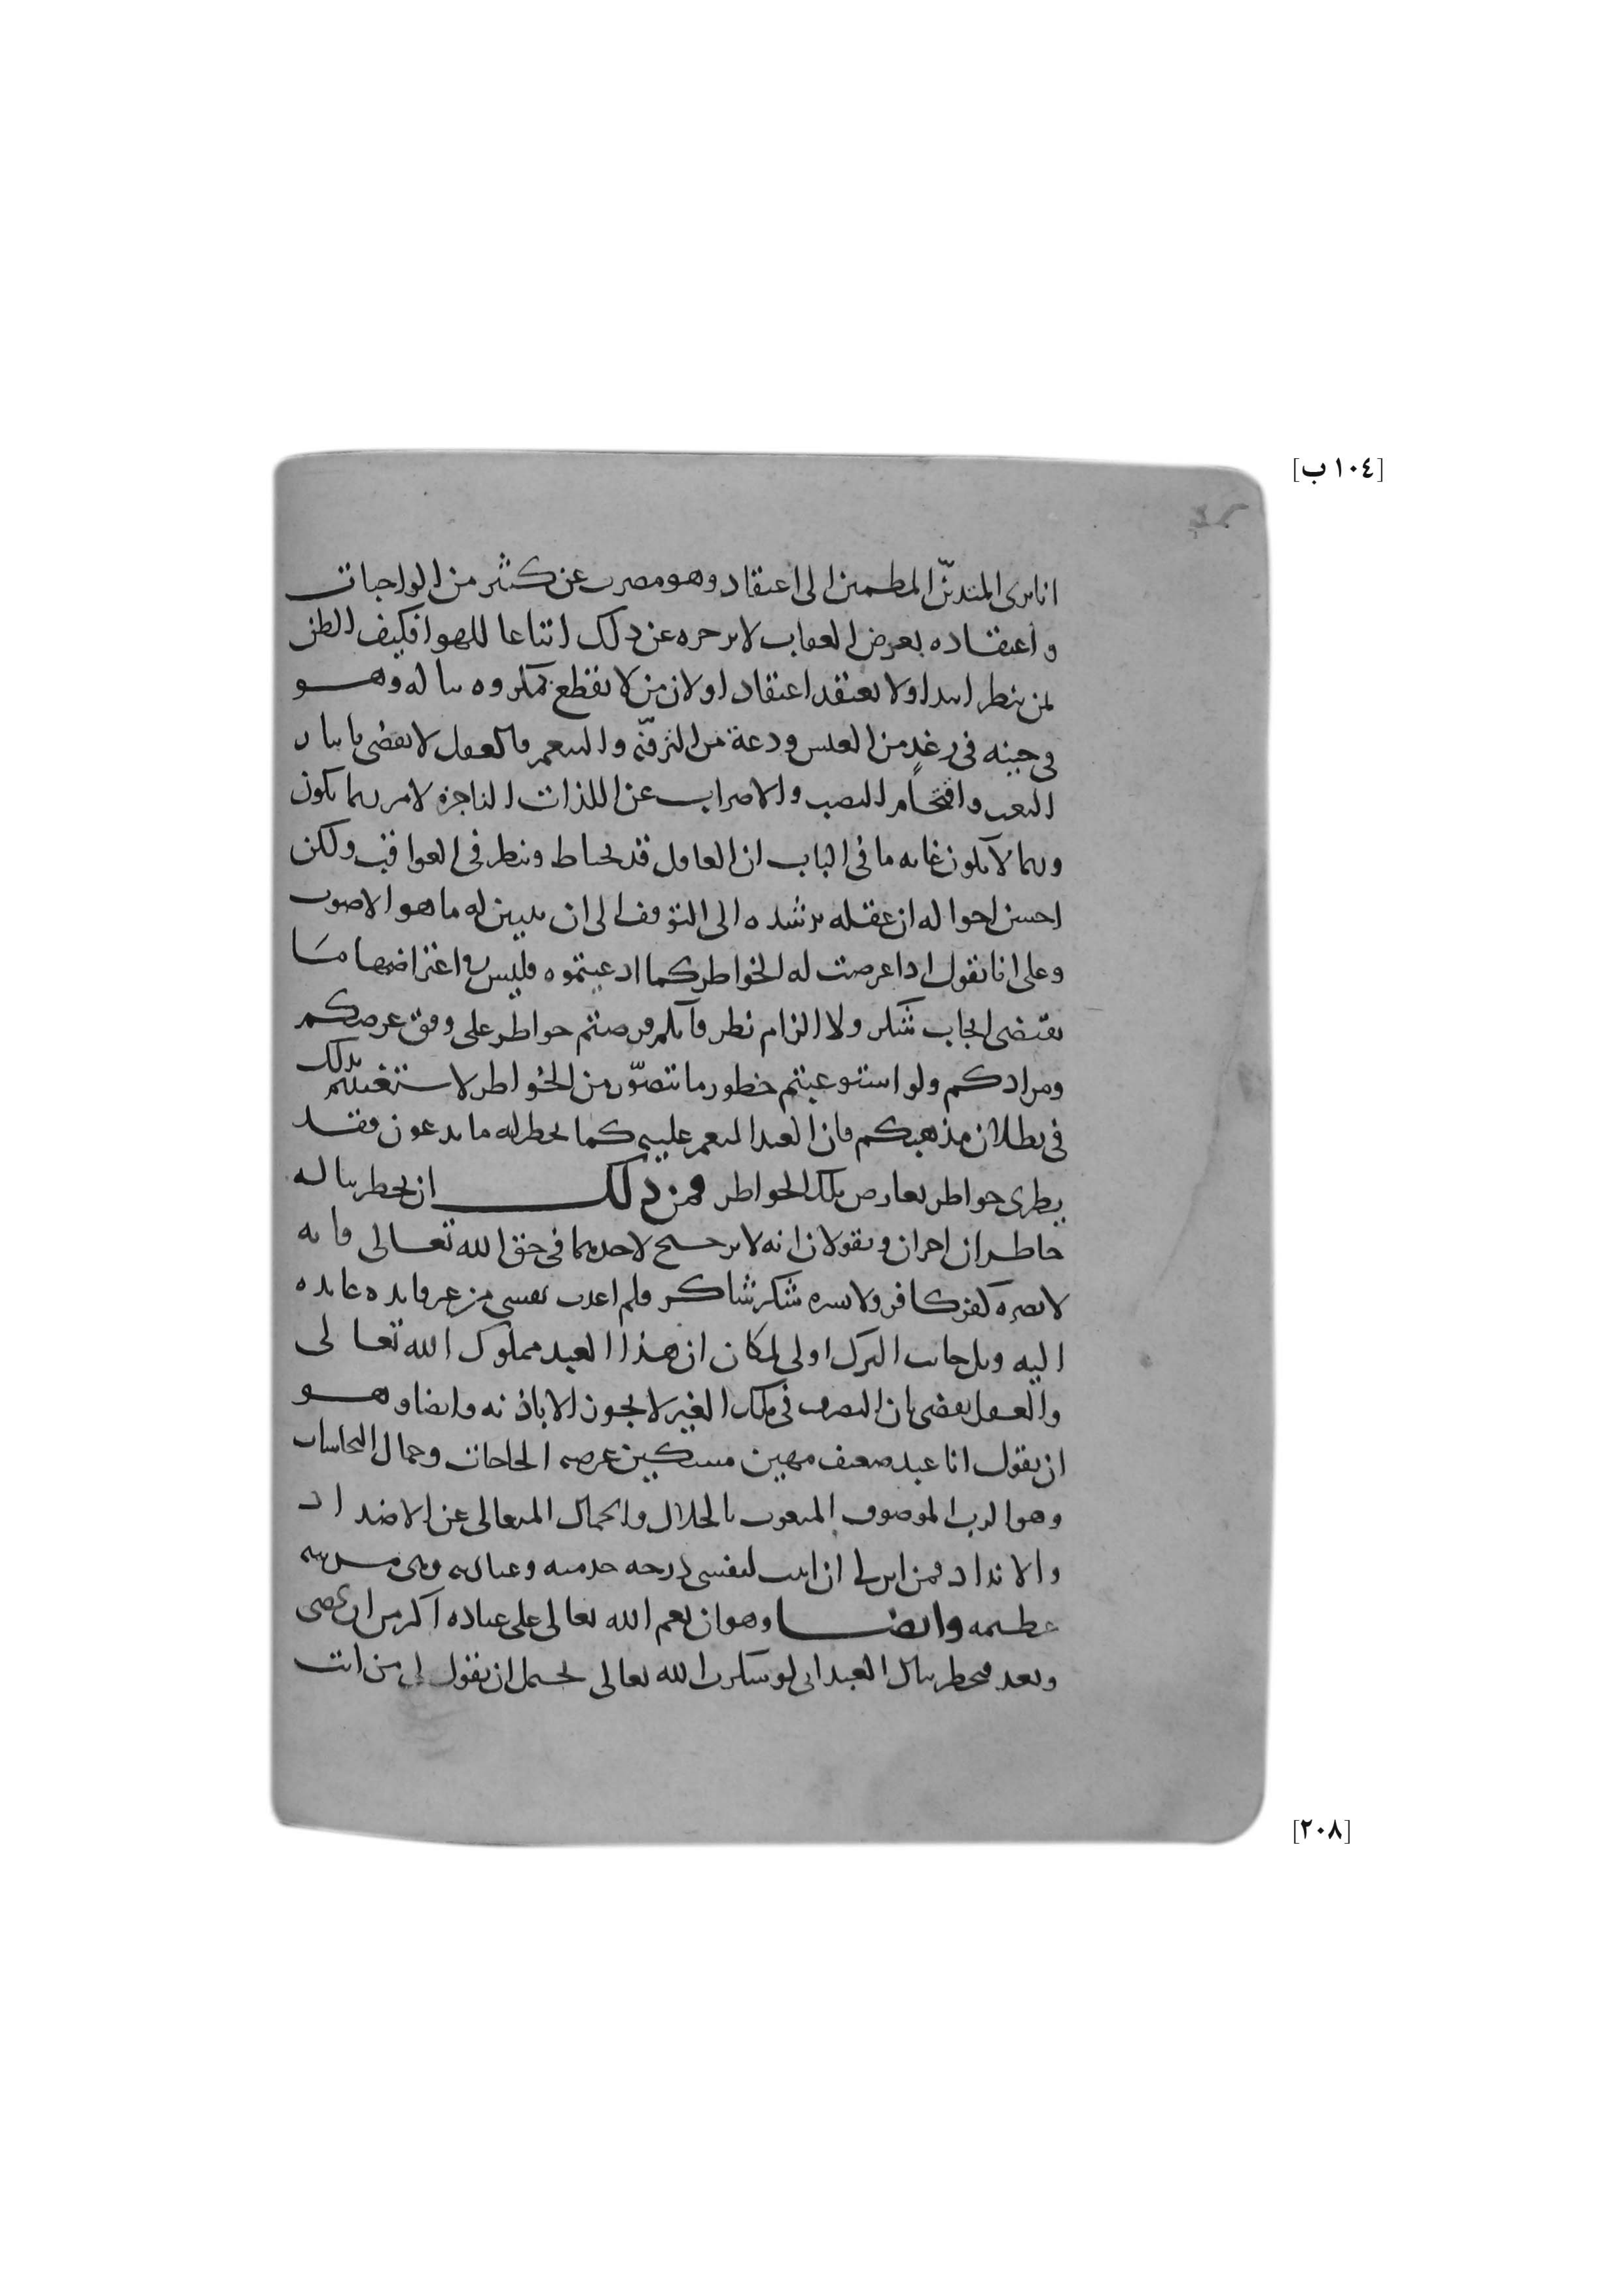 [١٠٤ ب]
انا نرى المتدين المطمئن الى اعتقاد وهو مضرب عن كثير من الواجبات
واعتقاده بعرض العقاب لا يزجره عن ذلك اتباعا للهوا فكيف الظن
لمن ينظر ابتداء ولا يعتقد اعتقادا ولا نمن لا يقطع بمكروه يناله وهو
في حينه في رغد من العيش ودعة من الترفه والتنعم فالعقل لا يقضي باتيان
التعب واقتحام النصب والاضراب عن اللذات الناجزة لامر ربما يكون
وربما لا يكون غاية ما في الباب ان العاقل قد يحتاط وينظر في العواقب ولكن
احسن احواله ان عقله يرشده الى التوقف الى ان يتبين له ما هو الاصوب
وعلى انا نقول اذا عرضت له الخواطر كما ادعيتموه فليس في اعتراضها ما
يقتضي ايجاب شكر ولا الزام نظر فانكم فرضتم خواطر على وفق غرضكم
ومرادكم ولو استوعبتم خطور ما تتصور من الخواطر لاستغنيتم بذلك
في بطلان مذهبكم فان العبد المنعم عليه كما يخطر له ما يدعون فقد
يطرى خواطر تعارض تلك الخواطر فمن ذلك ان يخطر بباله
خاطران اخران ويقولان انه لا يرجح لاحدهما في حق الله تعالى فانه
لا يضره كفر كافر ولا يسره شكر شاكر فلم اعذب نفسي من غير فايده عايده
اليه وبل جانب الترك اولى لمكان ان هذا العبد مملوك الله تعالى
والعقل يقضي بان التصرف في ملك الغير لا يجوز الا باذنه وايضا وهو
ان يقول انا عبد ضعيف مهين مسكين عرضه الحاجات وحمال
وهو الرب الموصوف المنعوت بالجلال والجمال المتعالي عن الاضداد
والانداد فمن اين لي ان اثبت لنفسي درجه خدمته وعبادته وهي مرتبه
عظيمه وايضا وهو ان نعم الله تعالى على عباده اكثر من ان تحصى
وبعد فيخطر ببال العبد اني لو شكرت الله تعالى يحتمل ان يقول لي من انت
[٢٠٨]